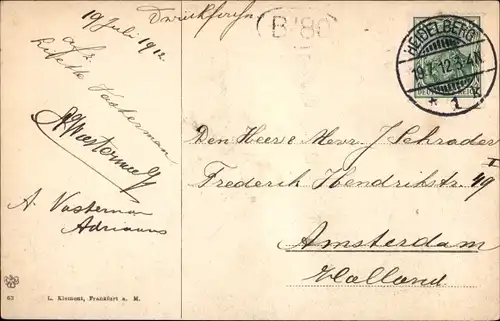 19 Juli 1912
B'86
HEIDELBERG
19.7.12.3-4N.
* 1 k
DEUTSCHES REICH
Vasterman
A. Vasterman
Adriaans
Den Heer & Mevr. J. Schrader
Frederik Hendrikstr. 49 I
Amsterdam
Holland
63 L. Klement, Frankfurt a. M.